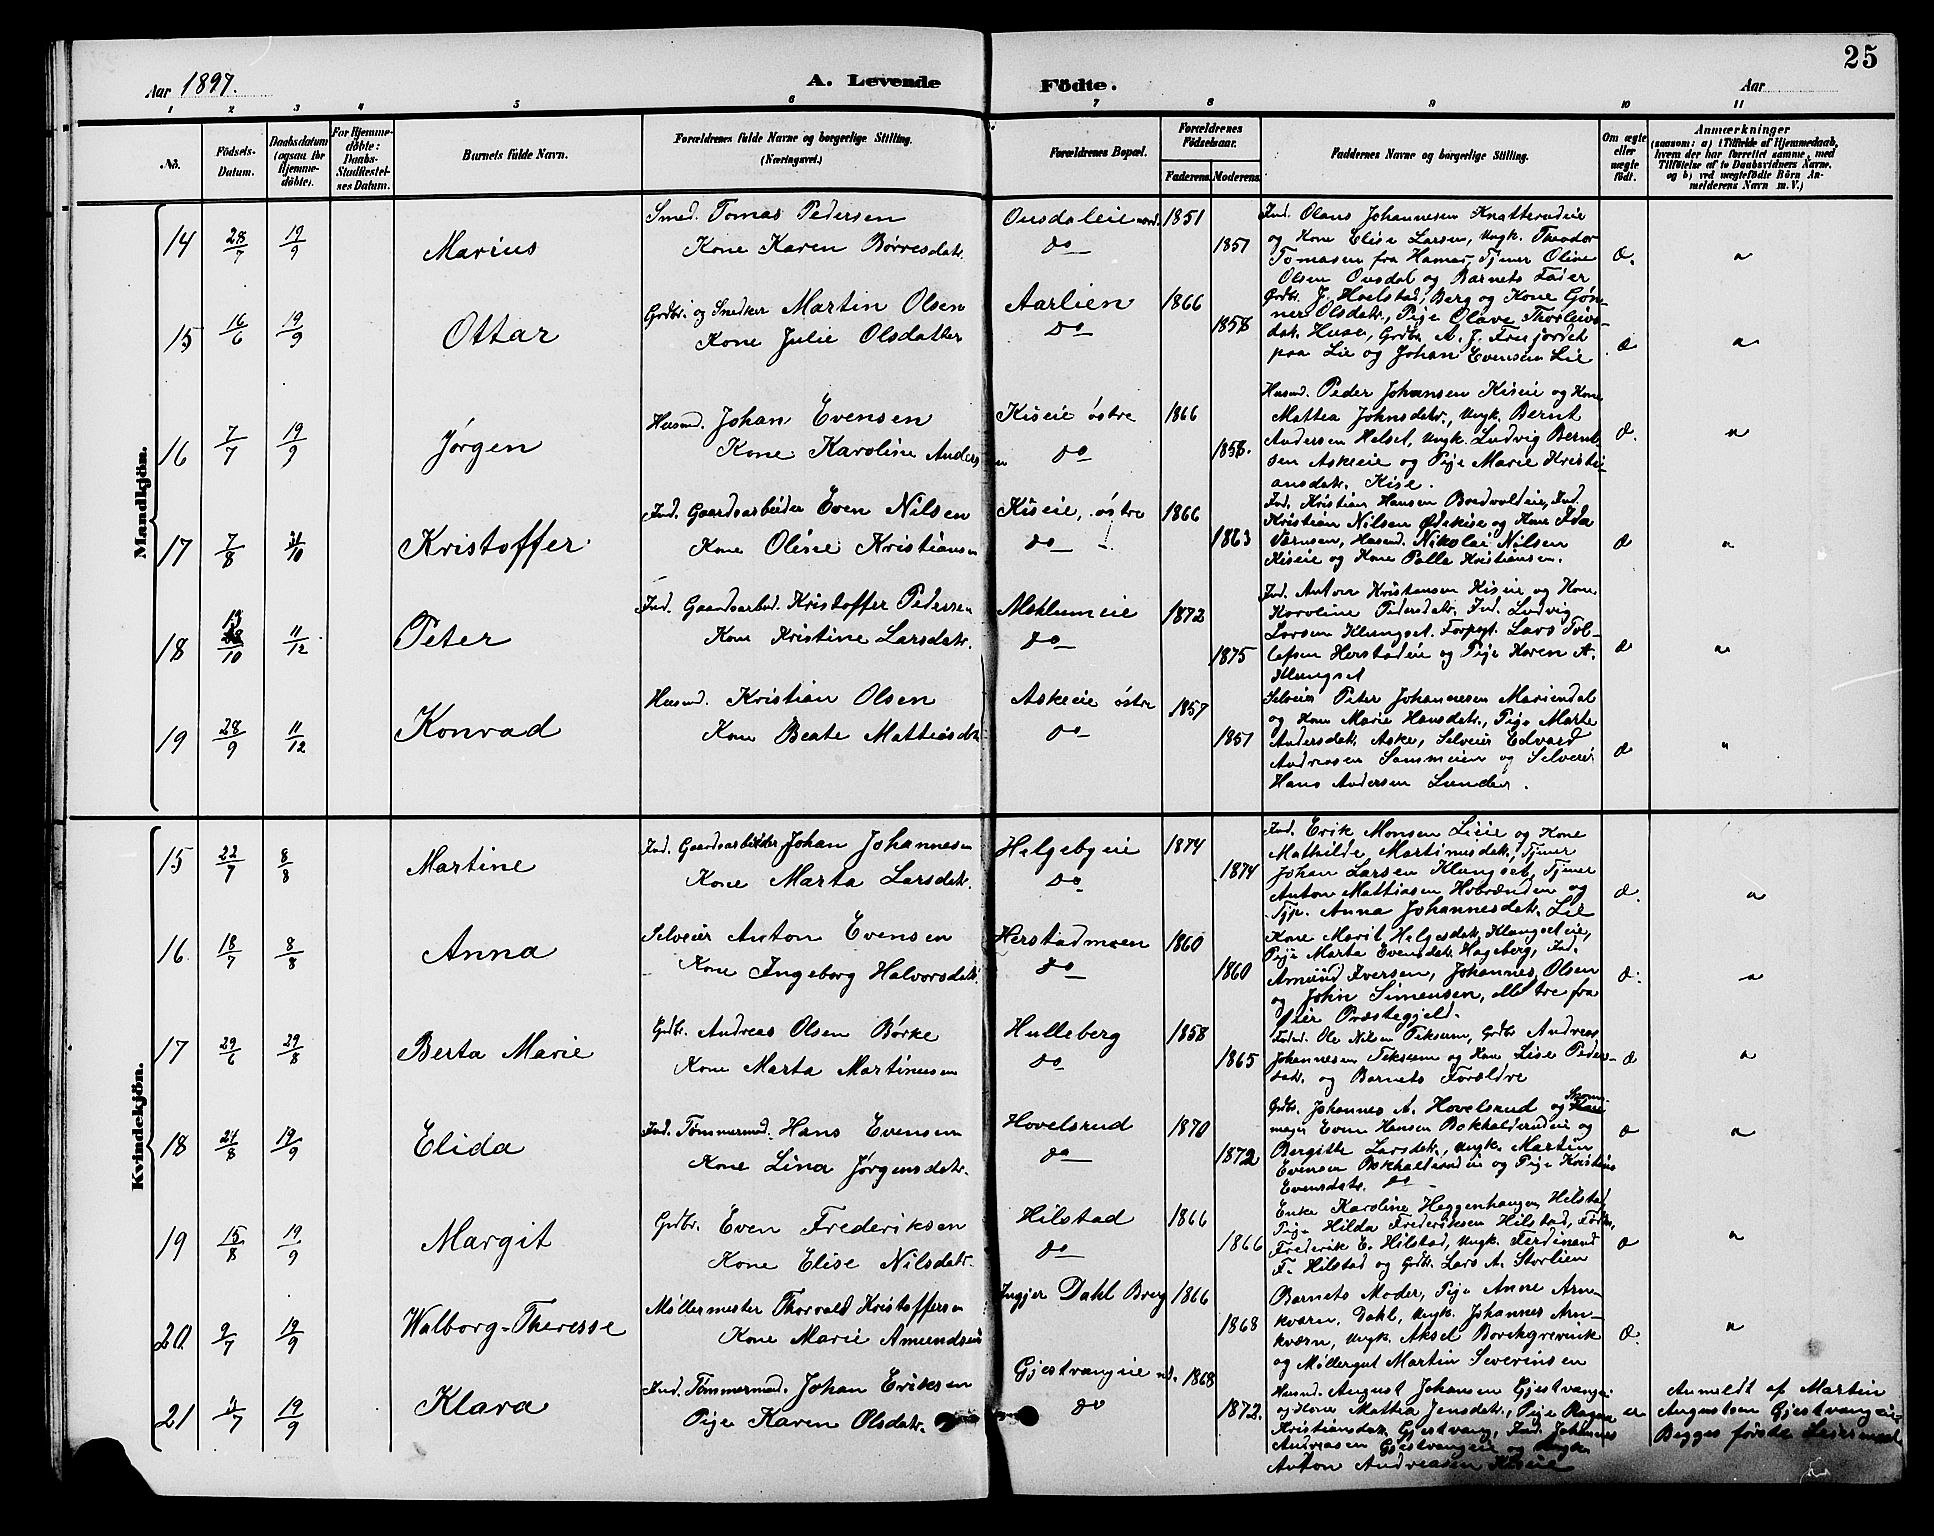 25
Aar 1897.
A. Levende Födte.
Aar
1 2 3 4 5 6 7 8 9 10 11
No.
Födsels-Datum.
Daabsdatum (ogsaa for Hjemmedöbte).
For Hjemmedöbte: Daabs-Stadfæstelses Datum.
Barnets fulde Navn.
Forældrenes fulde Navne og borgerlige Stilling. (Næringsvei.)
Forældrenes Bopæl.
Forældrenes Födselsaar.
Faderens. Moderens.
Faddernes Navne og borgerlige Stilling.
Om ægte eller uægte födt.
Anmærkninger
(saasom: a) i Tilfælde af Hjemmedaab,
hvem der har forrettet samme, med
Tilföielse af to Daabsvidners Navne.
og b) ved uægtefödte Börn An-
melderens Navn m. V.)
Mandkjön.
14 28/7 19/9 Marius
Smed. Tomas Pedersen
Kone Karen Børresdatr.
Ousdaleie nord. do
1851 1851
Ind. Olaus Johannesen Knatterudeie
og Kone Elise Larsen, Ungk. Theodor
Tomasen fra Hamar, Tjener Oline
Olsen Ousdal og Barnets Fader
Æ. "
15 16/6 19/9 Ottar
Grdbr. og Snedker Martin Olsen
Kone Julie Olsdatter
Aarlien do
1866 1858
Grdbr. J. Hoelstad, Berg og Kone Gøn-
ner Olsdatr., Pige Olave Thorleivs-
datr. Huse, Grdbr. A. J. Fresjordet
paa Lie og Johan Evensen Lie
Æ "
16 7/7 19/9 Jørgen
Husmd. Johan Evensen
Kone Karoline Andersen
Kiseie østre do
1866 1858.
Husmd. Peder Johansen Kiseie og Kone
Mattea Johnsdatr., Ungk. Bernt
Andersen Helset, Ungk. Ludvig Bernt-
sen Askeeie og Pige Marie Kristi-
ansdatr. Kise.
Æ. "
17 7/8 /10 Kristoffer
Ind. Gaardsarbeider Even Nilsen
Kone Oline Kristiansen
Kiseie, østre do
1866 1863
Ind. Kristian Hansen Bredvoldeie, Ind.
Kristian Nilsen Ødekise og Kone Ida
Husmd. Nikolai Nilsen
Kiseie og Kone Kristiansen.
Æ "
18 /10 11/12 Peter
Ind. Gaardsarbeid. Kristoffer Pedersen
Kone Kristine Larsdatr.
Meklumeie do
1872 1875
Ind. Anton Kristensen Kiseie og Kone
Karoline Pedersdatr. Ind. Ludvig
Larsen Klungset. Forpagt. Lars Tol-
lefsen Herstadeie og Pige Karen A.
Klungset
Æ "
19 28/9 11/12 Konrad
Husmd. Kristian Olsen
Kone Beate Mattiasdatr.
Askeeie østre do
1857 1851
Selveier Peter Johannesen Mariendal
og Kone Marie Hansdatr., Pige Marte
Andersdatr. Aske, Selveier Edvard
Andreasen og Selveier
Hans Andersen Lunder.
Æ "
Kvindekjön.
15 22/7 8/8 Martine
Ind. Gaardsarbeider Johan Johannesen
Kone Marta Larsdatr.
Helgebyeie do
1874 1874
Ind. Erik Monsen Lieie og Kone
Mathilde Martinusdatr., Tjener
Johan Larsen Klungset, Tjener
Anton Mattiasen Hobrænden og
Tjp. Anna Johannesdatr. Lie
Æ. "
16 18/7 8/8 Anna
Selveier Anton Evensen
Kone Ingeborg Halvorsdatr.
Herstadmoen do
1860 1860
Kone Marit Helgesdatr. Klungseteie,
Pige Marta Evensdatr. Hageberg, Ind.
Amund Iversen, Johannes Olsen
og John Simensen, alle tre fra
Præstegjeld.
Æ. "
17 29/6 29/8 Berta Marie
Grdbr. Andreas Olsen Børke
Kone Marta Martinusen
Hulleberg do
1858 1865
Ole Nilsen Teksum, Grdbr. Andreas
Johannesen Teksum og Kone Lise Peders-
datr. og Barnets Forældre
Æ "
18 21/8 19/9 Elida
Ind. Tømmermd. Hans Evensen
Kone Lina Jørgensdatr.
Hovelsrud do
1870 1872
Grdbr. Johannes A. Hovelsrud og
Even Hansen Bokhalderudeie og
Bergitte Larsdatr., Ungk. Martin
Evensen Bokhalderudeie og Pige Kristine
Evensdatr. do
Æ "
19 15/8 19/9 Margit
Grdbr. Even Frederiksen
Kone Elise Nilsdatr.
Hilstad do
1866 1866
Enke Karoline Heggenhaugen Hilstad,
Pige Hilda Frederiksen Hilstad,
Frederik E. Hilstad, Ungk. Ferdinand
F. Hilstad og Grdbr. Lars A. Storlien
Æ "
20 9/7 19/9 Walborg-Theresse
Møllermester Thorvald Kristoffersen
Kone Marie Amundsen
Ingjer Dahl Brug
1866 1868
Barnets Moder, Pige Anne Arne-
kværn, Dahl, Ungk. Johannes Arn-
kværn, Ungk. Aksel Borchgrevink
og Møllergut Martin Severinsen
Æ. "
21 /7 19/9 Klara
Ind. Tømmermd. Johan Eriksen
Pige Karen Olsdatr.
Gjestvangeie nd. do
1868 1872.
Husmd. August Johansen Gjestvangei
og Kone Mattea Jensdatr., Pige
Kristiansdatr. Gjestvang, Ind. Johannes
Andreasen Gjestvangeie og Ungk.
Anton Andreasen Kiseie
Anmeldt af Martin
Augustsen Gjestvangeie.
Begges første